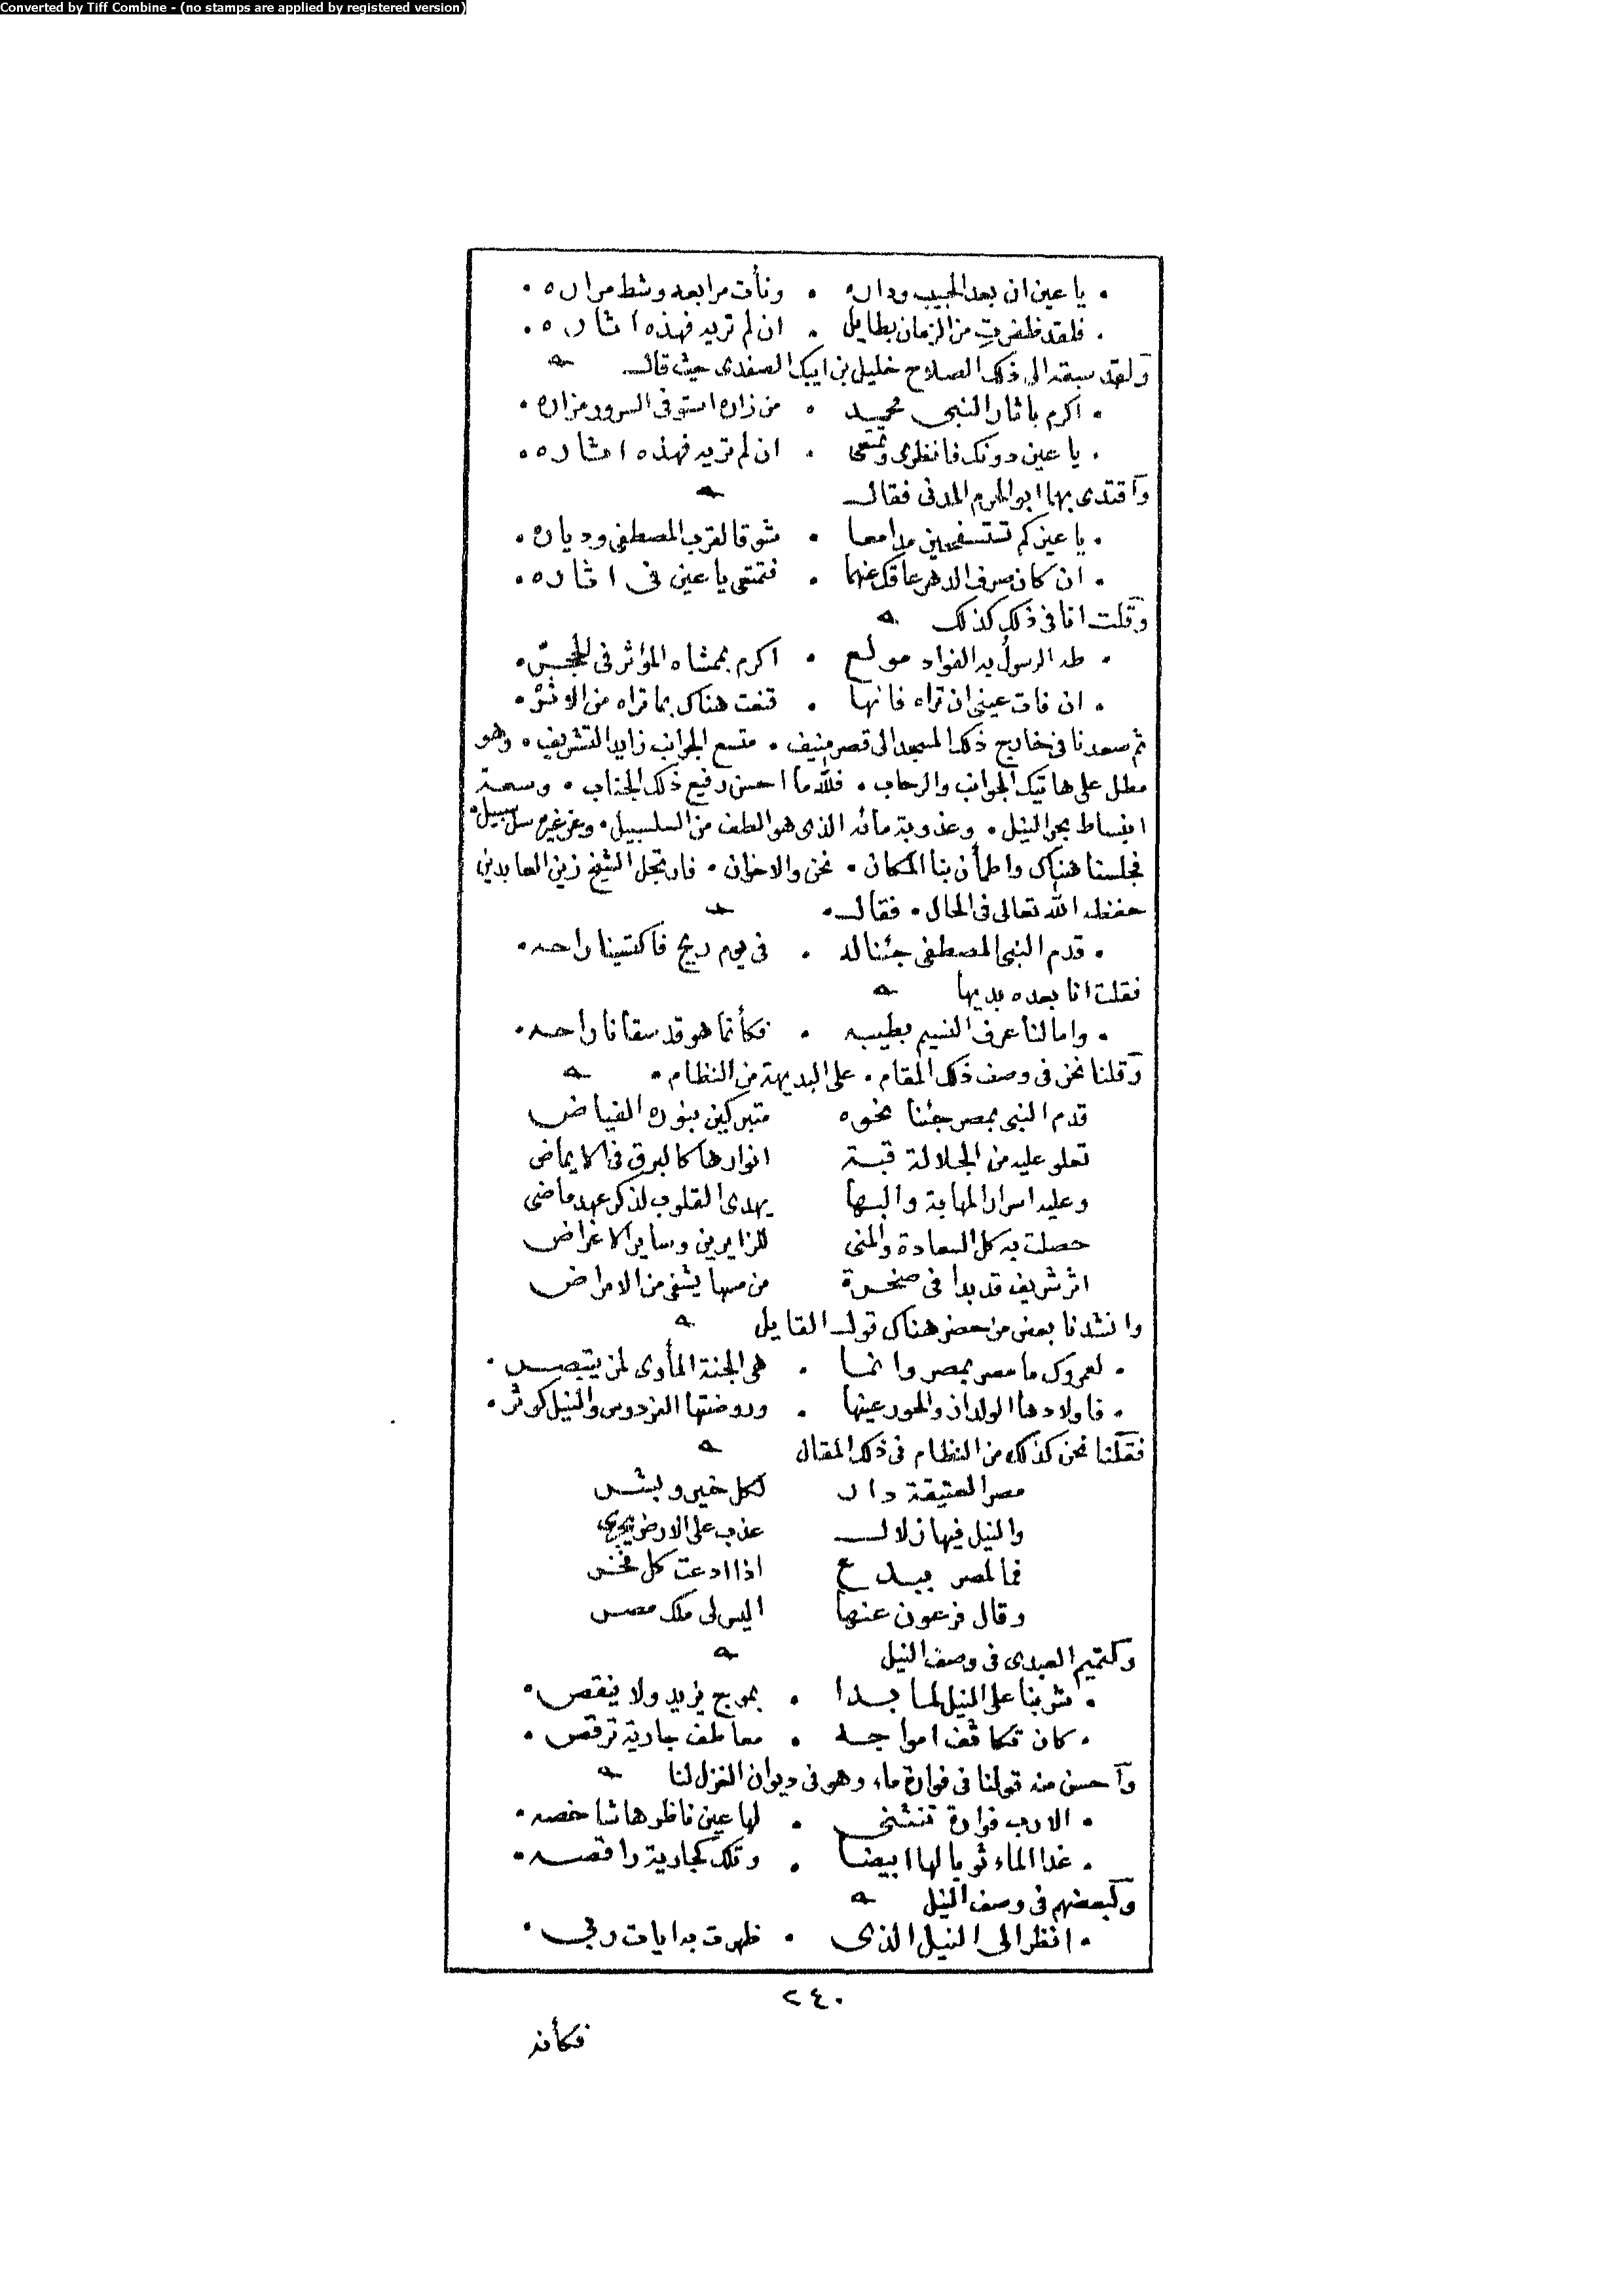 Converted by Tiff Combine - (no stamps are applied by registered version)
• يا عين ان بعد الحبيب وداره • ونأت مرابعه وشط مزاره •
• فلقد ظفرتِ من الزمان بطايل • ان لم تريه فهذه اثاره •
ولقد سبقه الى ذلك الصلاح خليل بن ايبك الصفدى حيث قال
• اكرم باثار النبى محمد • من زاره استوفى السرور مزاره •
• يا عين دونك فانظرى وتمتعى • ان لم تريه فهذه اثاره •
واقتدى بهما ابو الحرم المدنى فقال
• يا عين كم تستسفحين مدامعا • شوقا لقرب المصطفى ودياره •
• ان كان صرف الدهر عاقك عنهما • فتمتعى يا عين فى اثاره •
وقلت انا فى ذلك كذلك
• طه الرسول به الفواد مولع • اكرم بممشاه المؤثر فى الحجر •
• ان فات عينى ان تراه فانها • قنعت هناك بما تراه من الاثر •
ثم صعدنا فى خارج ذلك المسجد الى قصر منيف • متسع الجوانب زايد التشريف • وهو
مطل على هاتيك الجوانب والرحاب • فلله ما احسن رفيع ذلك الجناب • وسعة
انبساط بحر النيل • وعذوبة مائه الذى هو الطف من السلسبيل • وعن غيره سل سبيل •
فجلسنا هناك واطمأن بنا المكان • نحن والاخوان • فارتجل الشيخ زين العابدين
حفظه الله تعالى فى الحال • فقال •
• قدم النبى المصطفى جئنا له • فى يوم ريح فاكتسينا راحه •
فقلت انا بعده بديها
• واما لنا عرف النسيم بطيبه • فكأنما هو قد سقانا راحه •
وقلنا نحن فى وصف ذلك المقام • على البديهة من النظام •
قدم النبى بمصر جئنا نحوه متبركين بنوره الفياض
تعلو عليه من الجلالة قبة انوارها كالبرق فى الايماض
وعليه اسرار المهابة والبها يهدى القلوب لذكر عهد ماضى
حصلت به كل السعادة والمنى للزايرين وساير الاغراض
اثر شريف قد بدا فى صخرة من مسها يشفى من الامراض
وانشدنا بعض من حضر هناك قول القايل
• لعمروك ما مصر بمصر وانما • هى الجنة المأوى لمن يتبصر •
• فاولادها الولدان والحور عينها • وروضتها الفردوس والنيل كوثر •
فقلنا نحن كذلك من النظام فى ذلك المقال
مصر العتيقة دار لكل خير وبشر
والنيل فيها زلال عذب على الارض يجرى
فما لمصر ببدع اذا ادعت كل فخر
وقال فرعون عنها اليس لى ملك مصر
وكتميم العبدى فى وصف النيل
• شربنا على النيل لما بدا • بموج يزيد ولا ينقص •
• كان تكاثف امواجه • معاطف جارية ترقص •
واحسن منه قولنا فى فوارة ماء وهو فى ديوان الغزل لنا
• الا رب فوارة تنثنى • لها عين ناظرها شاخصه •
• غدا الماء ثوبا لها ابيضا • وتلك كجارية راقصه •
وكبعضهم فى وصف النيل
• انظر الى النيل الذى • ظهرت به ايات ربى •
٢٤٠
فكأنه